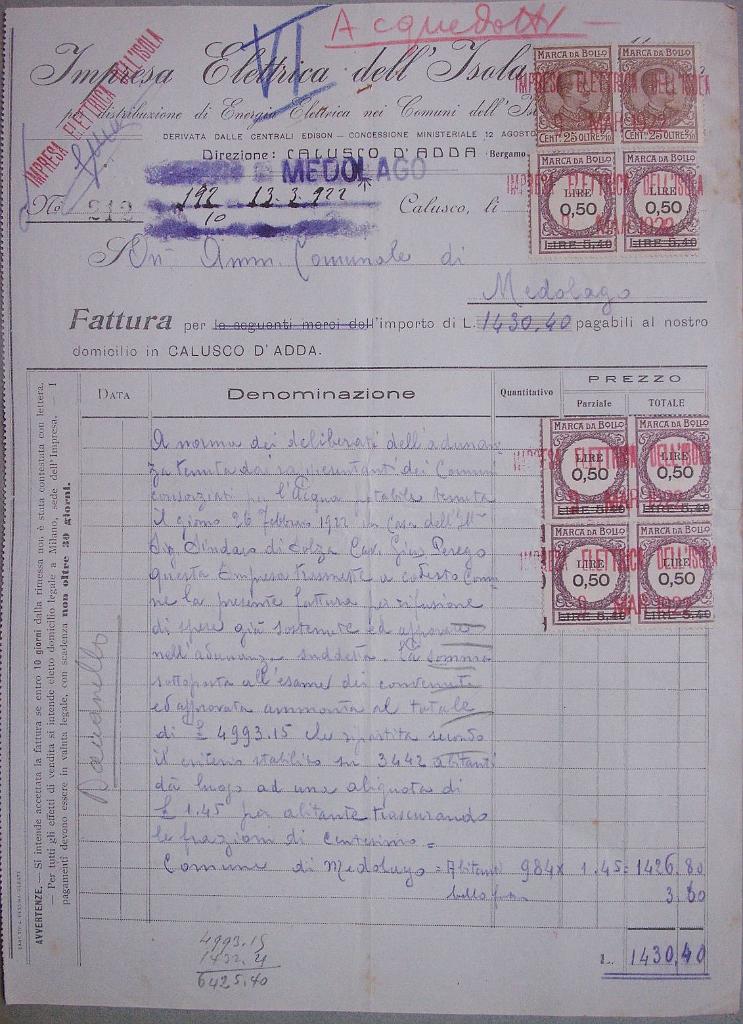 Acquedotti
VI
Impresa Elettrica dell'Isola
per distribuzione di Energia Elettrica nei Comuni dell'
DERIVATA DALLE CENTRALI EDISON — CONCESSIONE MINISTERIALE 12 AGOSTO
Direzione: CALUSCO D'ADDA (Bergamo
IMPRESA ELETTRICA DELL'ISOLA
MEDOLAGO
192 13.3.922
10
No 212
Calusco, li
MARCA DA BOLLO MARCA DA BOLLO
IMPRESA ELETTRICA DELL'ISOLA
MAR 1922
CENT. 25 OLTRE 5/10 CENT. 25 OLTRE 5/10
MARCA DA BOLLO MARCA DA BOLLO
LIRE 0,50 LIRE 0,50
IMPRESA ELETTRICA DELL'ISOLA
MAR 1922
LIRE 5,40 LIRE 5,40
On. Amm. Comunale di
Medolago
Fattura per le seguenti merci dell'importo di L. 1430,40 pagabili al nostro
domicilio in CALUSCO D'ADDA.
DATA Denominazione Quantitativo PREZZO
Parziale TOTALE
A norma dei deliberati dell'adunan
za tenuta dai rappresentanti dei Comuni
consorziati per l'Acqua potabile tenuta
il giorno 26 Febbraio 1922 in Casa dell'Ill
Sig. Sindaco di Solza Cav. Perego
questa Impresa trasmette a codesto Comu
ne la presente fattura per rifusione
di spese già sostenute ed approvate
nell'adunanza suddetta. La somma
sottoposta all'esame dei convenuti
ed approvata ammonta al totale
di £ 4993.15 che ripartita secondo
il criterio stabilito su 3442 abitanti
dà luogo ad una aliquota di
£ 1.45 per abitante trascurando
le frazioni di centesimo =
Comune di Medolago = Abitanti 984 x 1.45 = 1426.80
3 60
L. 1430,40
MARCA DA BOLLO MARCA DA BOLLO
LIRE 0,50 LIRE 0,50
IMPRESA ELETTRICA DELL'ISOLA
MAR 1922
LIRE 5,40 LIRE 5,40
MARCA DA BOLLO MARCA DA BOLLO
LIRE 0,50 LIRE 0,50
IMPRESA ELETTRICA DELL'ISOLA
MAR 1922
LIRE 5,40 LIRE 5,40
4993.15
6425.40
AVVERTENZE. — Si intende accettata la fattura se entro 10 giorni dalla rimessa non è stata contestata con lettera.
— Per tutti gli effetti di vendita si intende eletto domicilio legale a Milano, sede dell'Impresa. — I
pagamenti devono essere in valuta legale, con scadenza non oltre 30 giorni.